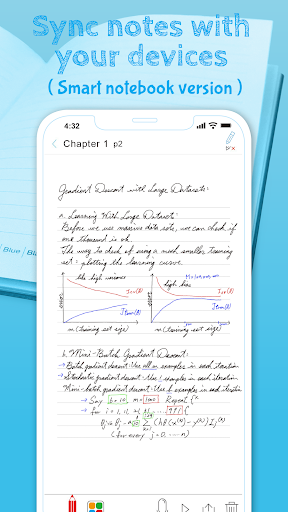 Sync notes with
your devices
( Smart notebook version )
4:32
Chapter 1 p2
Gradient Descent with Large Datasets:
a. Learning With Large Dataset:
Before we use massive data sets, we can check if
one thousand is ok.
The way to check of using a much smaller training
set: plotting the learning curve.
the high variance
high bias
error
Jcv(θ)
Jtrain(θ)
m (training set size)
error
Jcv(θ)
Jtrain(θ)
m (training set size)
b. Mini-Batch Gradient Descent:
→ Batch gradient descent: Use all m examples in each iteration
→ Stochastic gradient descent: Use 1 examples in each iteration
Mini-batch gradient descent: Use b examples in each iteration
→ Say b=10, m=1000 Repeat {
→ for i = 1, 11, 21, ... 991 {
(for every j=0, ... n)
Blue